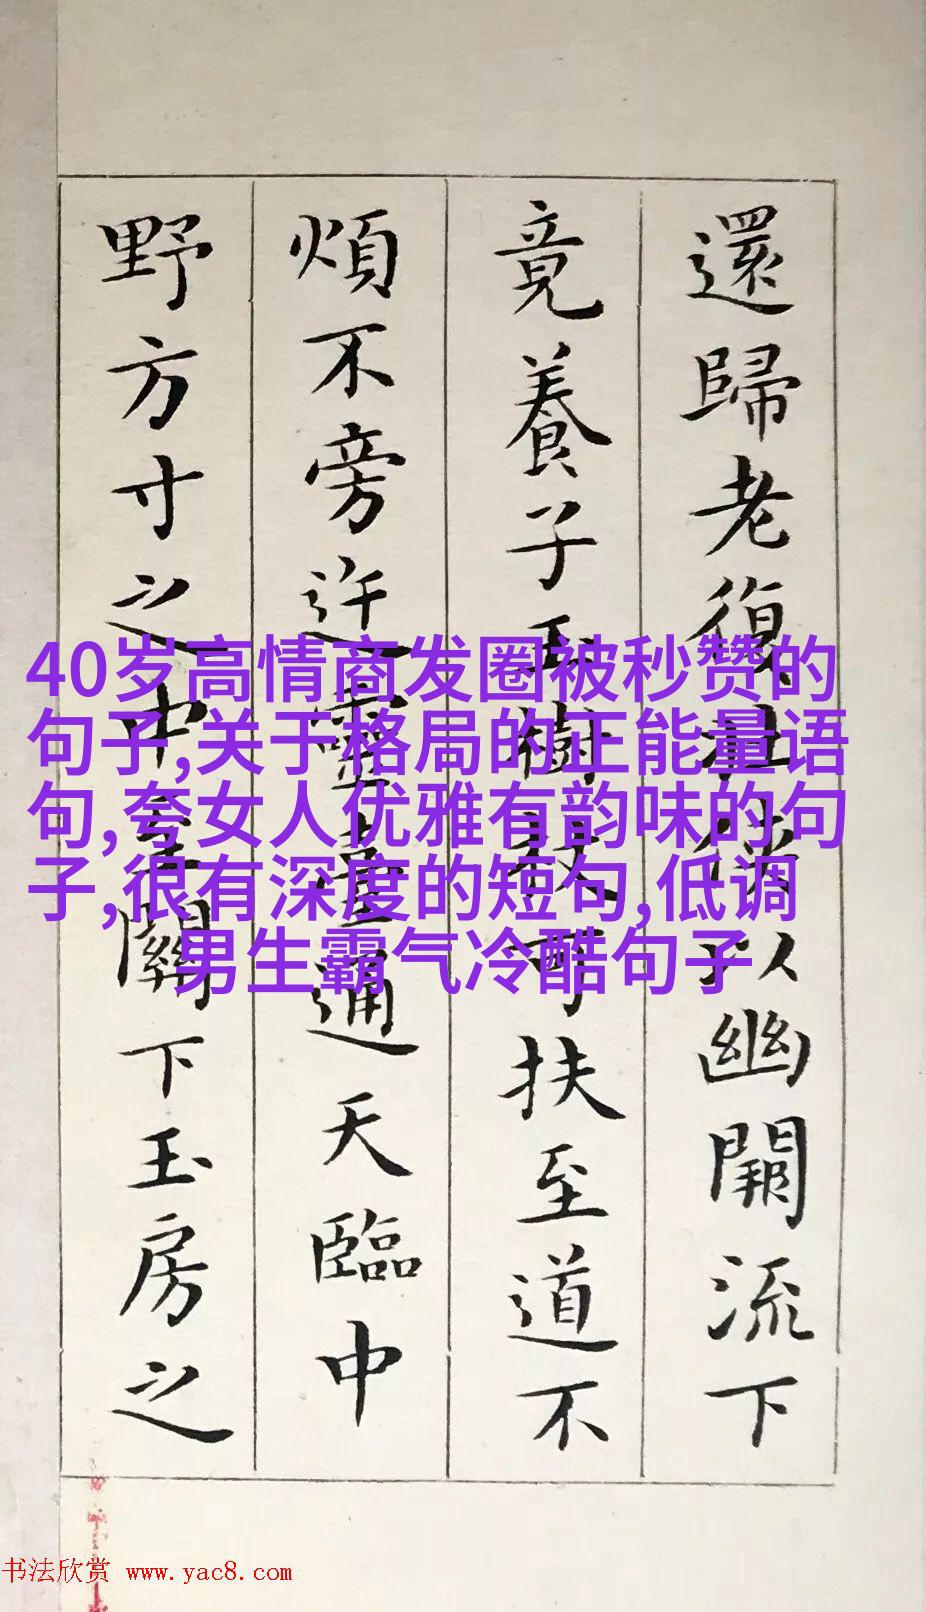 還歸老復壯俠以幽闕流下
竟養子玉樹杖可扶至道不
煩不旁迕靈臺通天臨中
野方寸之中至關下玉房之
40岁高情商发圈被秒赞的
句子,关于格局的正能量语
句,夸女人优雅有韵味的句
子,很有深度的短句,低调
男生霸气冷酷句子
书法欣赏 www.yac8.com